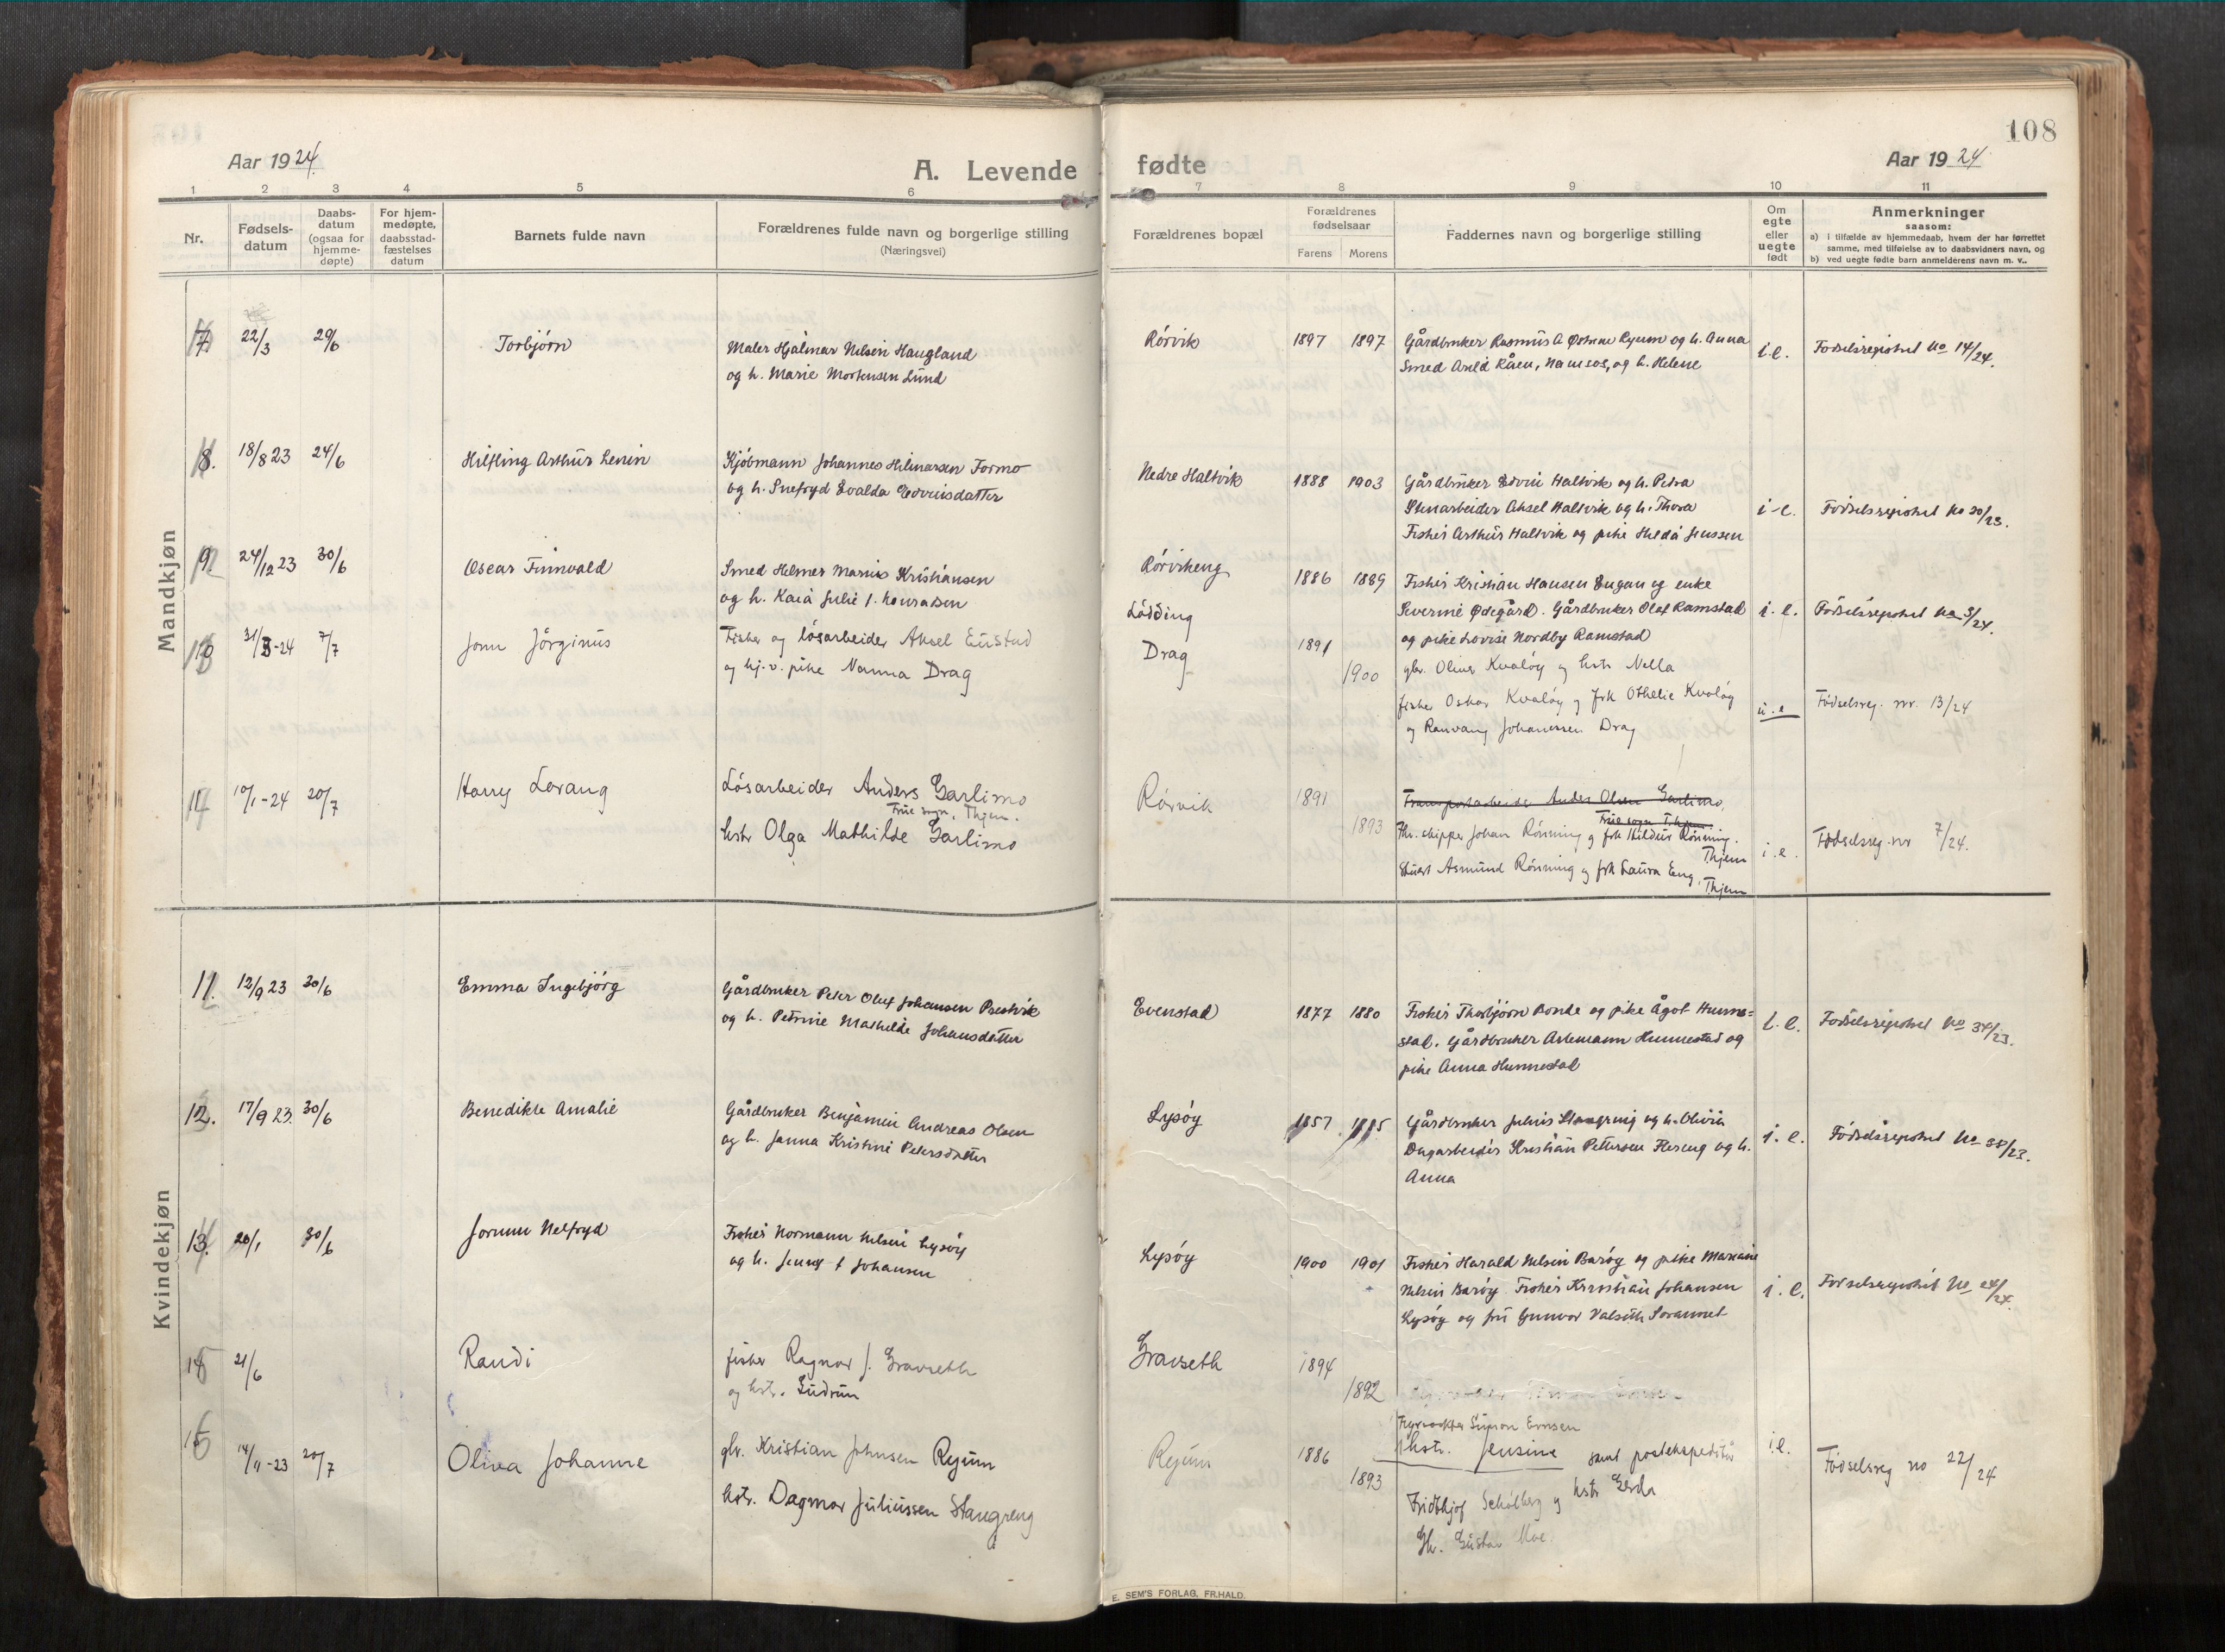 108
Aar 1924
A. Levende fødte
Aar 1924
1 2 3 4 5 6 7 8 9 10 11
Nr.
Fødsels-
datum
Daabs-
datum
(ogsaa for
hjemme-
døpte)
For hjem-
medøpte,
daabsstad-
fæstelses
datum
Barnets fulde navn
Forældrenes fulde navn og borgerlige stilling
(Næringsvei)
Forældrenes bopæl
Forældrenes
fødselsaar
Farens Morens
Faddernes navn og borgerlige stilling
Om
egte
eller
uegte
født
Anmerkninger
saasom:
a) i tilfælde av hjemmedaab, hvem der har forrettet
samme, med tilføielse av to daabsvidners navn, og
b) ved uegte fødte barn anmelderens navn m. v..
Mandkjøn
7 22/3 29/6 Torbjørn
Maler Hjalmar Nilsen Haugland
og h. Marie Mortensen Lund
Rörvik 1897 1897
Gårdbruker Rasmus A Ryum og h. Anna
Smed Arild Råen, Namsos, og h. Helene
i.e. Fødselsregistret No 14/24.
8. 18/8 23 24/6 Hilfling Arthur Lenin
Kjöbmann Johannes Hilmarsen Formo
og h. Snefryd Evalda Edvinsdatter
Nedre Haltvik 1888 1903
Gårdbruker Edvin Haltvik og h. Petra
Stenarbeider Aksel Haltvik og h. Thora
Fisker Arthur Haltvik og pike Hilda Jenssen
i.e. Födselsregistret No 30/23.
9. 24/12 23 30/6 Oscar Finnvald
Smed Helmer Marius Kristiansen
og h. Kaia Julie f. Konradsen
Rörvikeng 1886 1889
Lödding
Fisker Kristian Hansen Engan og enke
Severine Ødegård. Gårdbruker Olaf Ramstad
og pike Lovise Nordby Ramstad
i.e. Födselsregistret No 3/24.
10 31/3-24 7/7 Jonn Jörginus
Fisker og lösarbeider Aksel Eústad
og hj.v. pike Nanna Drag
Drag 1891 1900
gbr. Oliver Kvalöy og hstr Nella
fisker Oskar Kvalöy og frk Othelie Kvalöy
og Ranvang Johanessen Drag
u.e Födselsreg. nr. 13/24
11 10/1-24 20/7 Harry Levang
Lösarbeider Anders Garlimo
hstr Olga Mathilde Garlimo
Rörvik 1891 1893
Transportarbeider Anders Olsen Garlimo,
skipper Johan Rönning og frk Hildur Rönning.
Thjem
Asmund Rönning og frk Laura Eng, Thjem
i.e. Födselsreg. nr 7/24.
Kvindekjøn
11. 12/9 23 30/6 Emma Ingebjörg
Gårdbruker Peter Oluf Johansen Prestvik
og h. Petrine Mathilde Johansdatter
Evenstad 1877 1880
Fisker Thorbjörn Bonde og pike Ågot Hunne-
stad. Gårdbruker Astemann Hunnestad og
pike Anna Hunnestad
i.e. Födselsregistret No 34/23.
12. 17/9 23. 30/6 Benedikte Amalie
Gårdbruker Benjamin Andreas Olsen
og h. Janna Kristine Petersdatter
Lysöy 1857 1885
Gårdbruker Julius Staugreng og h. Olivia
Dagarbeider Kristian Pettersen Flereng og h.
Anna
i.e. Födselsregistret No 38/23.
13. 20/1 30/6 Jorunn Nelfryd
Fisker Normann Nilsen Lysöy
og h. Jenny f Johansen
Lysöy 1900 1901
Fisker Harald Nilsen Baröy og pike Mariane
Nilsen Baröy. Fisker Kristian Johansen
Lysöy og fru Gunvor Valseth Sorannet
i.e. Fødselsregistret No 24/24.
14 21/6 Randi
fisker Ragnar J. Gravseth
og hstr. Gudrun
Gravseth 1894 1892
Fyrvokter Simon Evnsen
hstr. Jensine samt postekspeditör
Fridthjof Schölberg og hstr Gerda
15 14/11-23 20/7 Oliva Johanne
gbr. Kristian Johnsen Ryum
hstr. Dagmar Juliussen Staugreng
Ryum 1886 1893
Gustav Moe.
i.e. Födselsreg no 22/24
E. SEM'S FORLAG, FR.HALD.